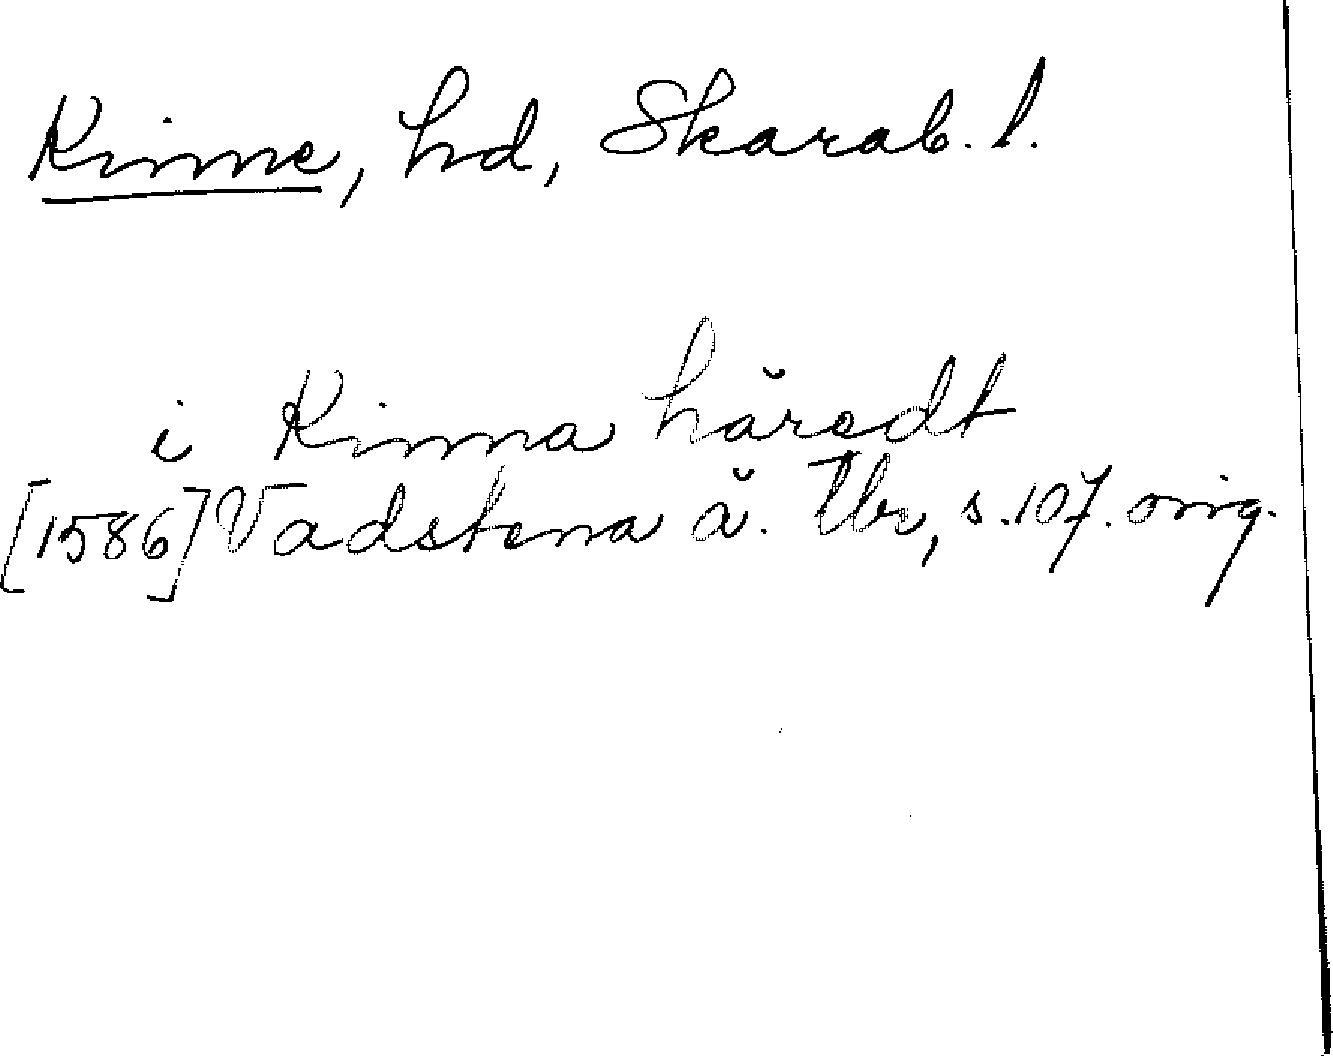 Kinne, hd, Skarab. l.
i Kinna häredt
[1586] Vadstena ä. Tbr, s. 107. orig.